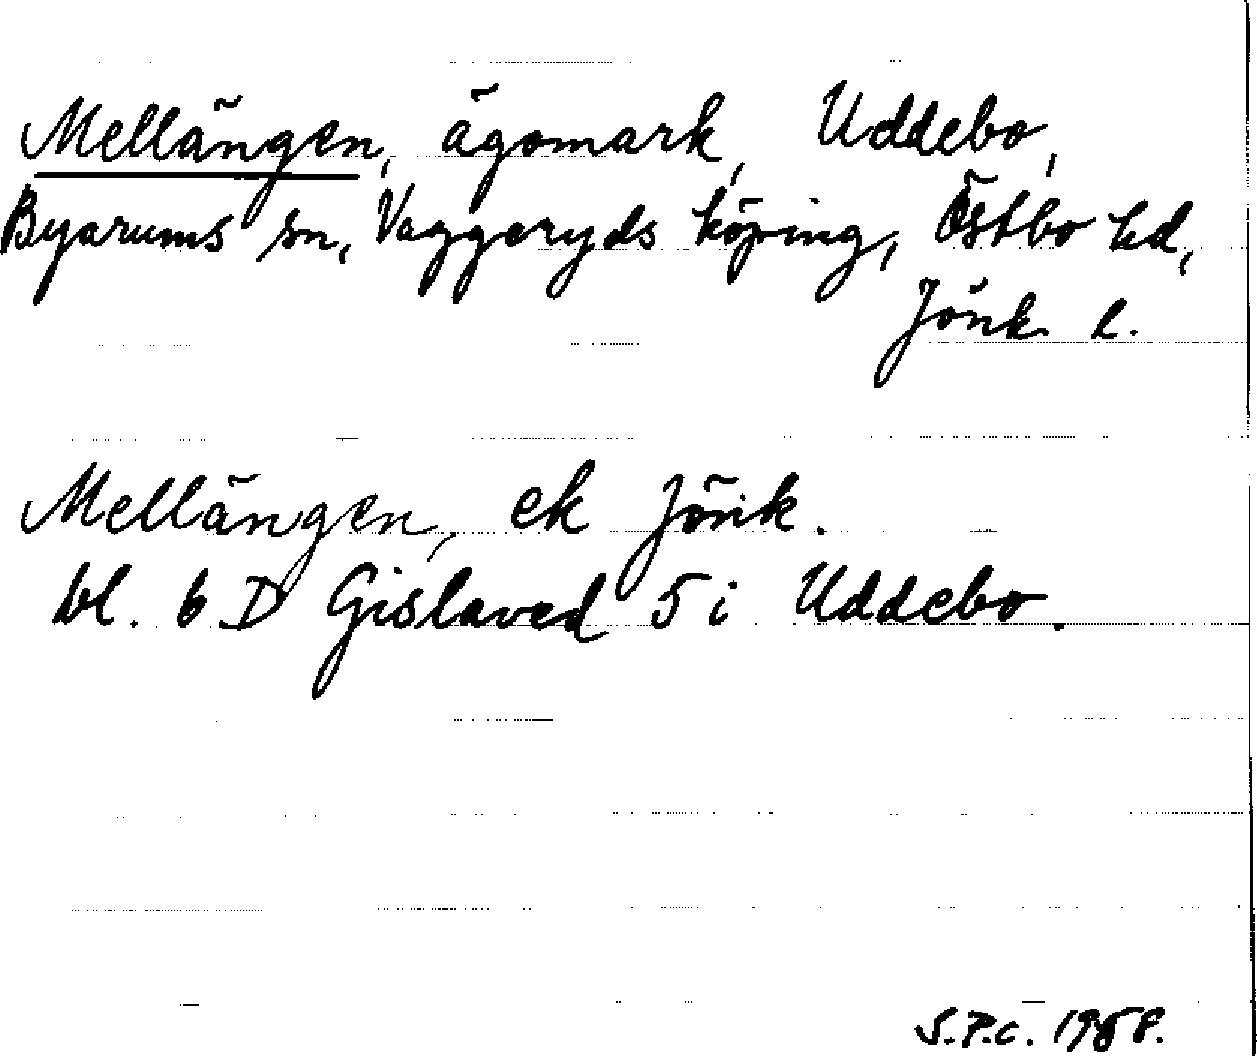 Mellängen, ägomark, Uddebo,
Byarums sn, Vaggeryds köping, Östbo hd,
Jönk. l.
Mellängen, ek Jönk.
bl. 6 D Gislaved 5 i Uddebo.
S.P.C. 1958.